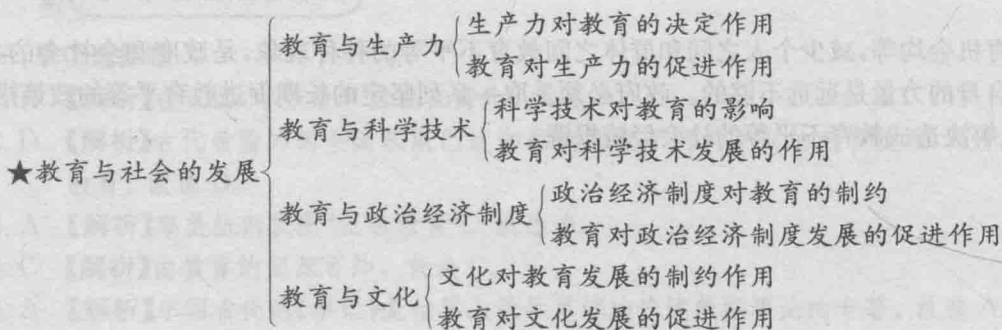 教育与生产力
生产力对教育的决定作用
教育对生产力的促进作用
教育与科学技术
科学技术对教育的影响
教育对科学技术发展的作用
★教育与社会的发展
教育与政治经济制度
政治经济制度对教育的制约
教育对政治经济制度发展的促进作用
教育与文化
文化对教育发展的制约作用
教育对文化发展的促进作用